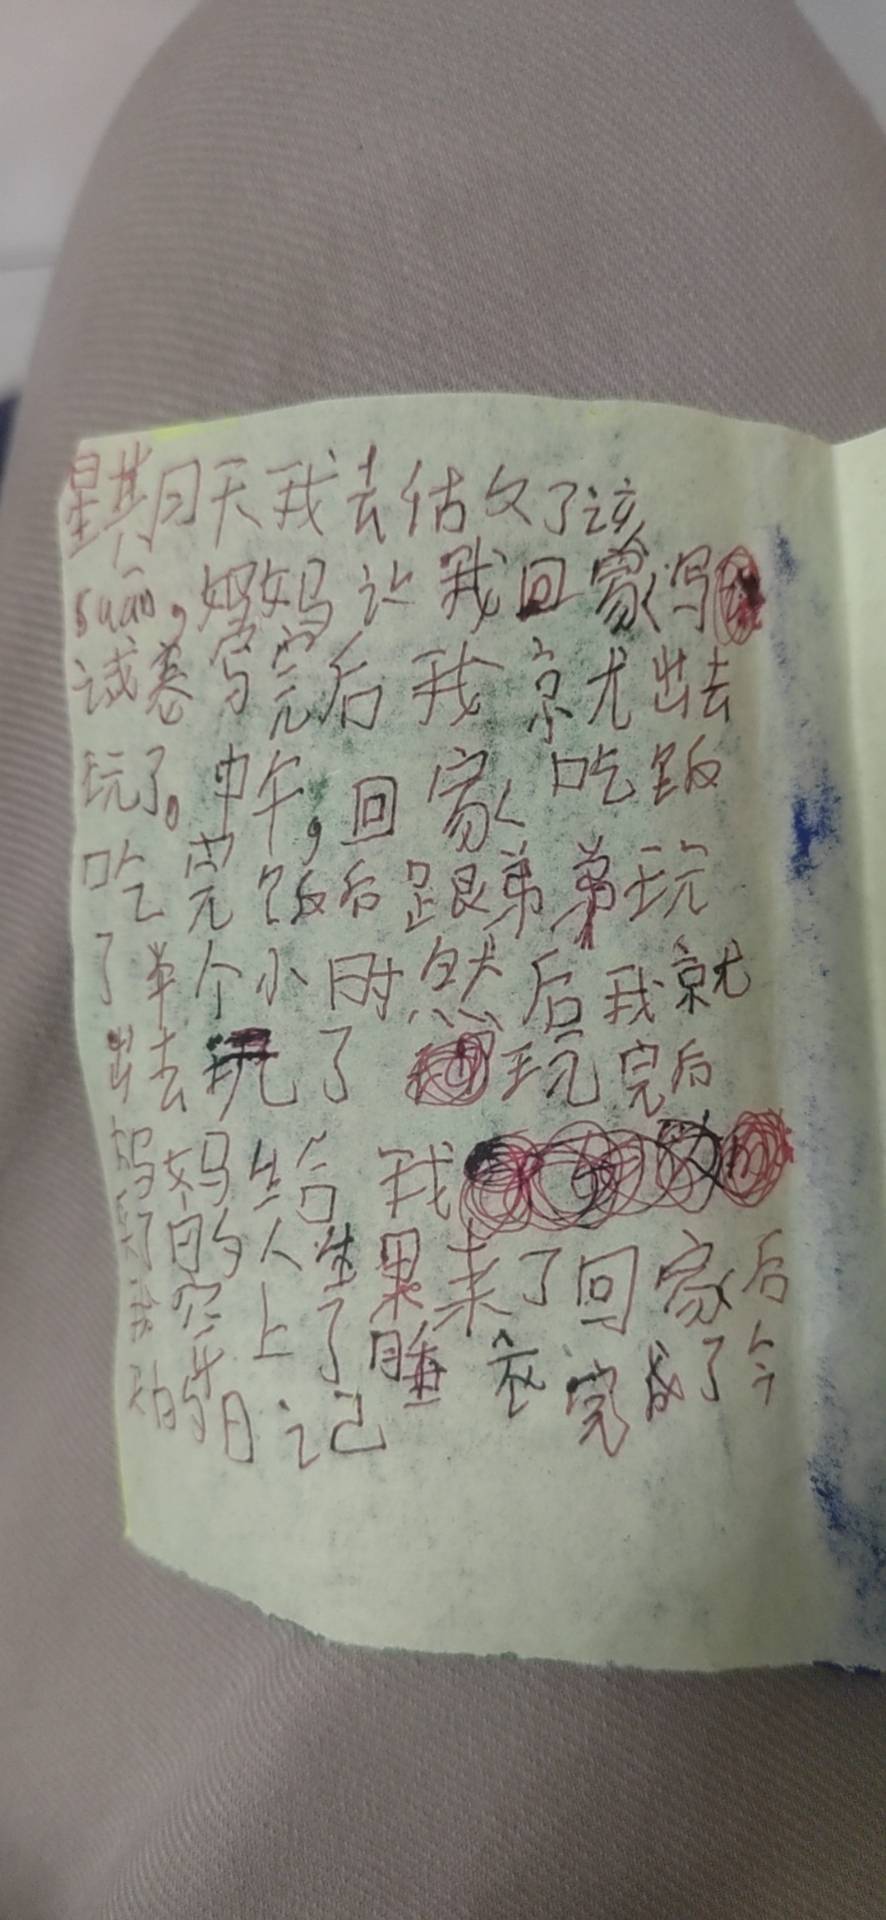 星期天我去估文了该
suān，妈妈让我回家写
试卷写完后我就出去
玩了。中午，回家吃饭
吃完饭后跟弟弟玩
了半个小时然后我就
出去玩了 玩完后
妈妈给我
买的人生果来了回家后
穿上了睡衣 完成了今
的日记